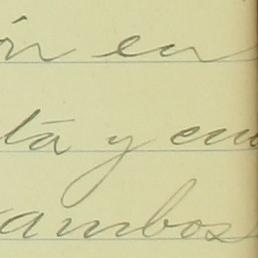 ón en
tá y en
ambos